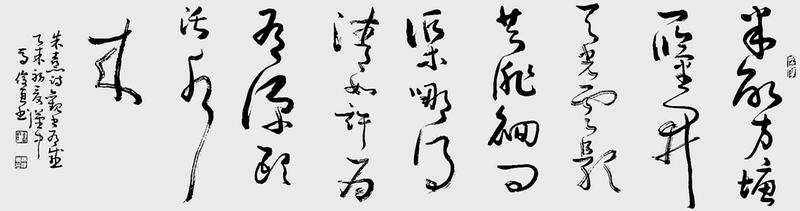 半畝方塘
一鑒開
天光雲影
共徘徊问
渠哪得
清如許為
有源頭
活水
來
朱熹詩觀書有感
乙未初夏漢中